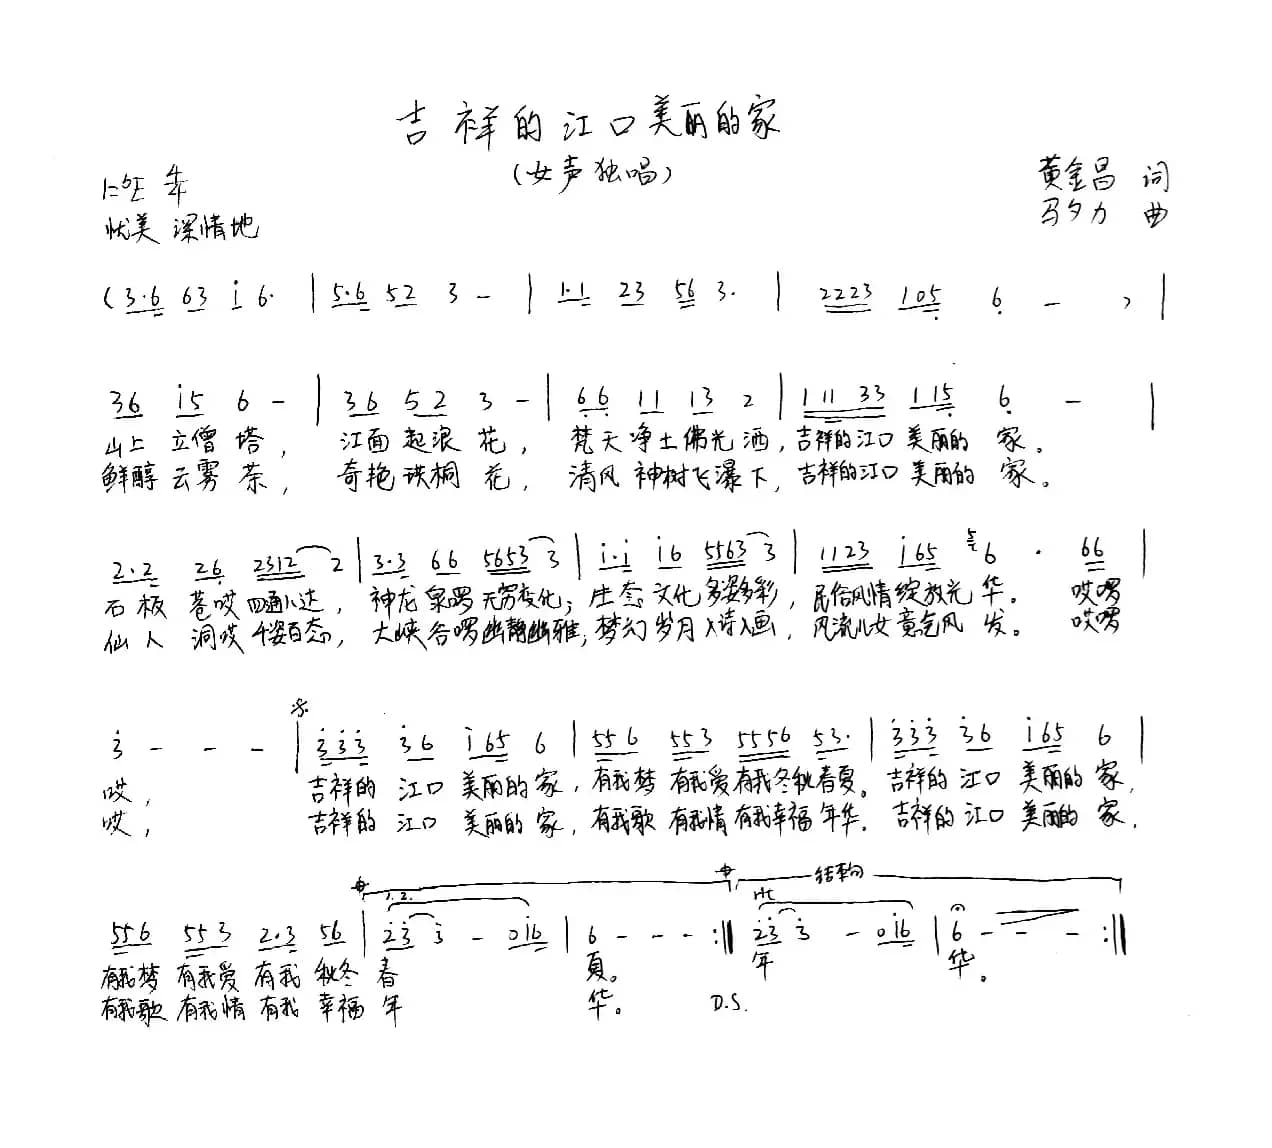 吉祥的江口美丽的家
(女声独唱)
1=♭E 4/4
黄金昌 词
优美 深情地
马夕力 曲
(3·6 63 i 6· | 5·6 52 3 - | 1·1 23 56 3· | 2223 105 6 - ) |
36 i5 6 - | 36 52 3 - | 66 11 13 2 | 111 33 115 6 - |
山上 立僧 塔, 江面 起浪 花, 梵天净土佛光洒,吉祥的江口 美丽的 家。
鲜醇 云雾 茶, 奇艳珙桐 花, 清风神树飞瀑下,吉祥的江口 美丽的 家。
2·2 26 2312 2 | 3·3 66 5653 3 | i·i i6 5563 3 | 1123 i65 5 6 · 66 |
石板 苍哎 四通八达, 神龙泉啰 无穷变化; 生态文化多姿多彩, 民俗风情绽放光 华。 哎啰
仙人 洞哎 千姿百态, 大峡谷啰幽静幽雅;梦幻岁月入诗入画, 风流儿女意气风 发。 哎啰
3 - - - | 333 36 i65 6 | 556 553 5556 53· | 333 36 i65 6 |
哎, 吉祥的 江口 美丽的家,有我梦 有我爱有我冬秋春夏。吉祥的江口 美丽的家,
哎, 吉祥的 江口 美丽的家,有我歌 有我情有我幸福年华。吉祥的江口 美丽的家,
1.2. 结束句
556 553 2·3 56 | 23 3 - 0i6 | 6 - - - :‖ 23 3 - 0i6 | 6 - - - :‖
有我梦 有我爱 有我 秋冬 春 夏。 年 华。
有我歌 有我情 有我 幸福 年 华。 D.S.